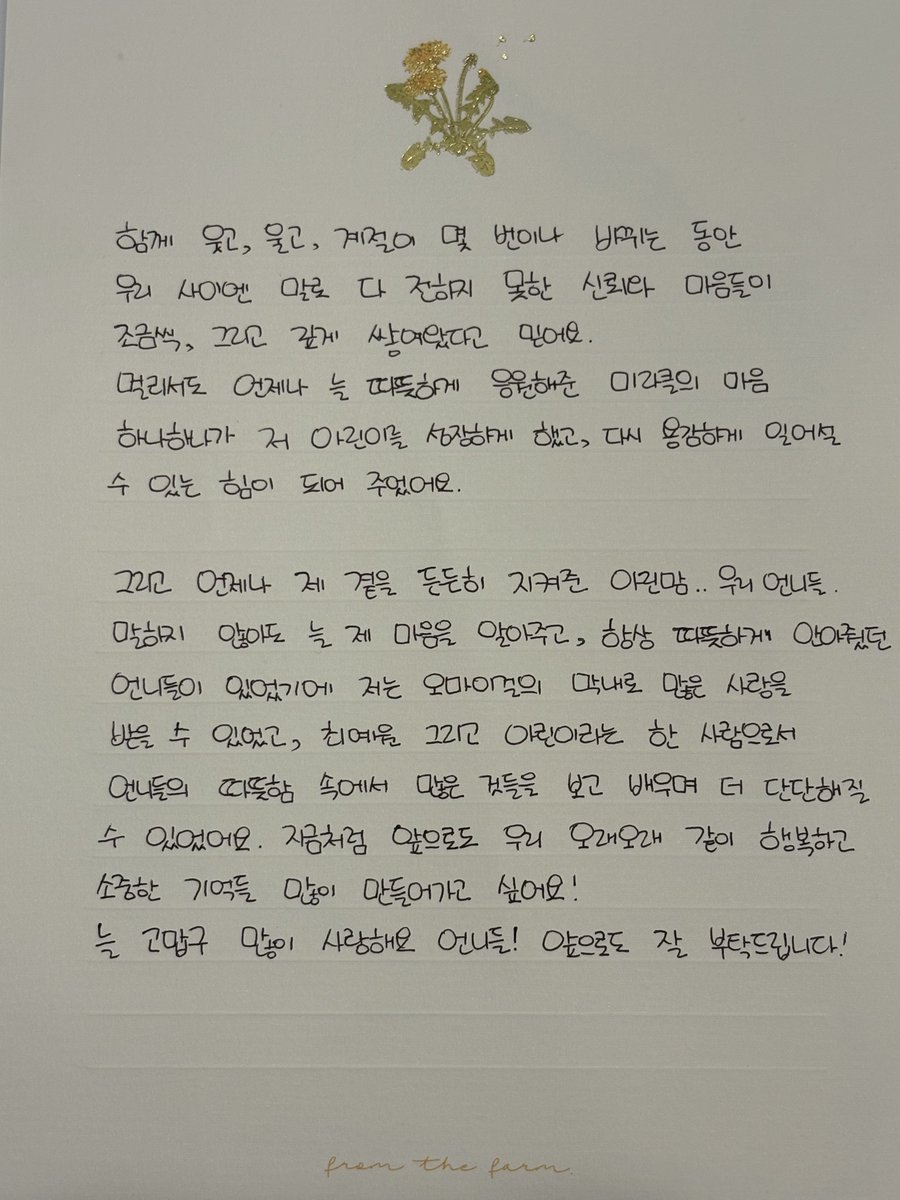 함께 웃고, 울고, 계절이 몇 번이나 바뀌는 동안
우리 사이엔 말로 다 전하지 못한 신뢰와 마음들이
조금씩, 그리고 깊게 쌓여왔다고 믿어요.
멀리서도 언제나 늘 따뜻하게 응원해준 미라클의 마음
하나하나가 저 아린이를 성장하게 했고, 다시 용감하게 일어설
수 있는 힘이 되어 주었어요.
그리고 언제나 제 곁을 든든히 지켜준 아린맘.. 우리 언니들.
말하지 않아도 늘 제 마음을 알아주고, 항상 따뜻하게 안아줬던
언니들이 있었기에 저는 오마이걸의 막내로 많은 사랑을
받을 수 있었고, 최예원 그리고 아린이라는 한 사람으로서
언니들의 따뜻함 속에서 많은 것들을 보고 배우며 더 단단해질
수 있었어요. 지금처럼 앞으로도 우리 오래오래 같이 행복하고
소중한 기억들 많이 만들어가고 싶어요!
늘 고맙구 많이 사랑해요 언니들! 앞으로도 잘 부탁드립니다!
from the farm.